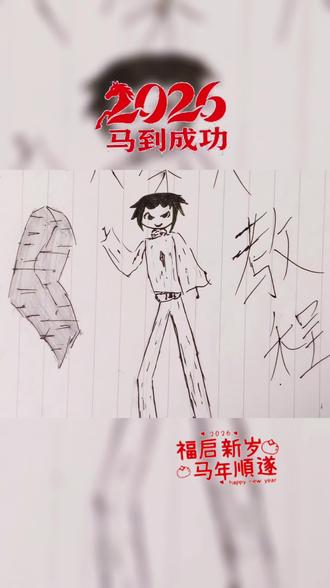 2026
马到成功
教
程
2026
福启新岁
马年順遂
happy new year